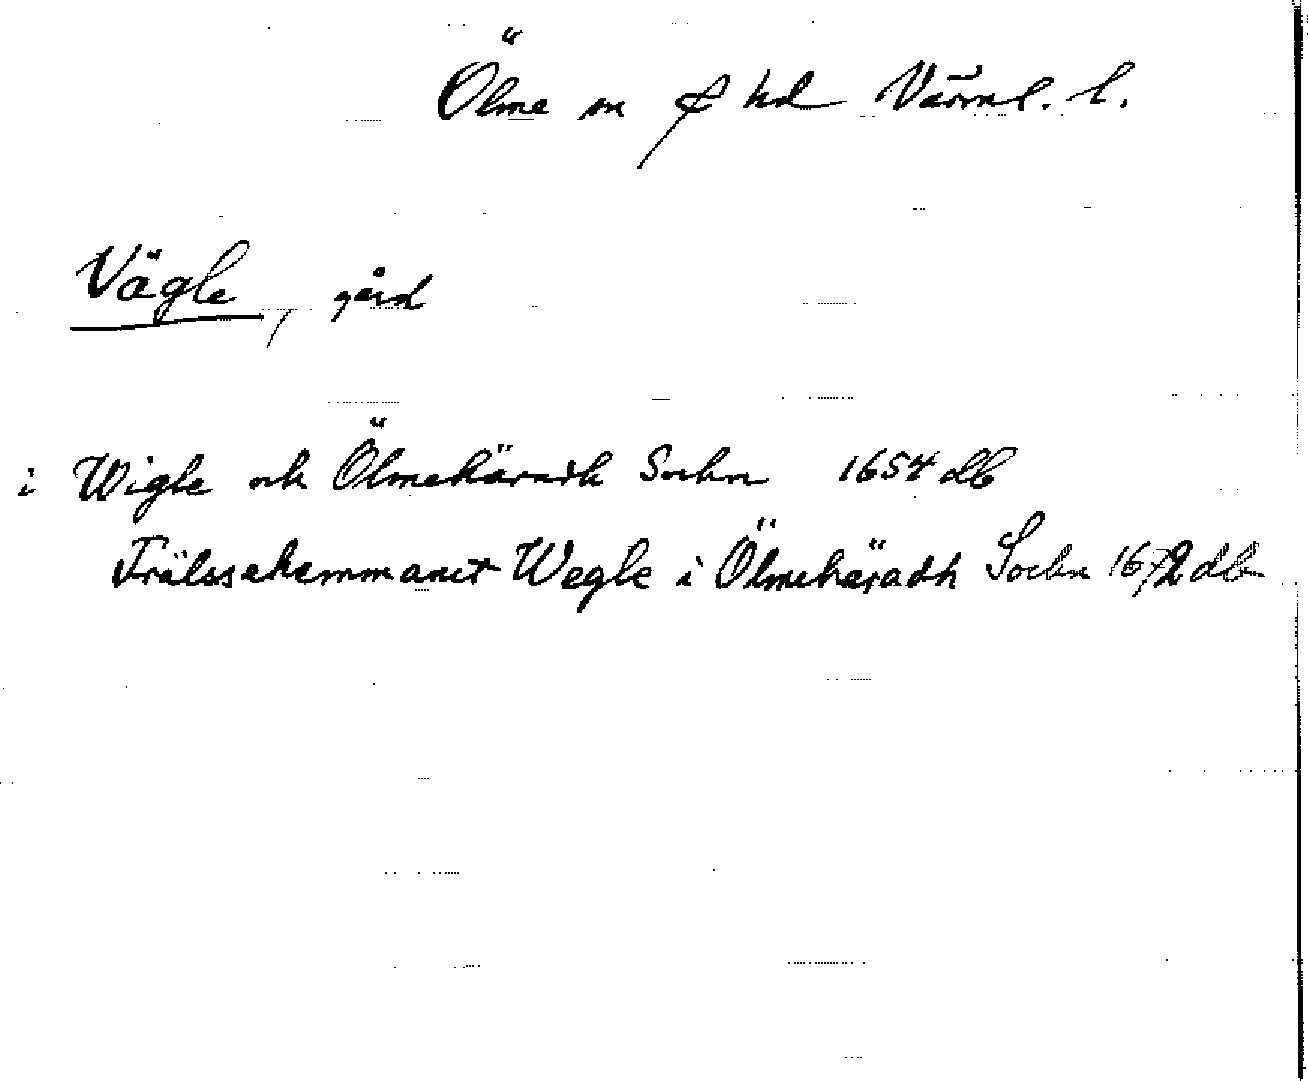 Ölme sn & hd Värml. l.
Vägle, gård
i Wigle och Ölmehäradh Sochn 1654 db
Frälssehemmanet Wegle i Ölmehäradh Sochn 1672 db